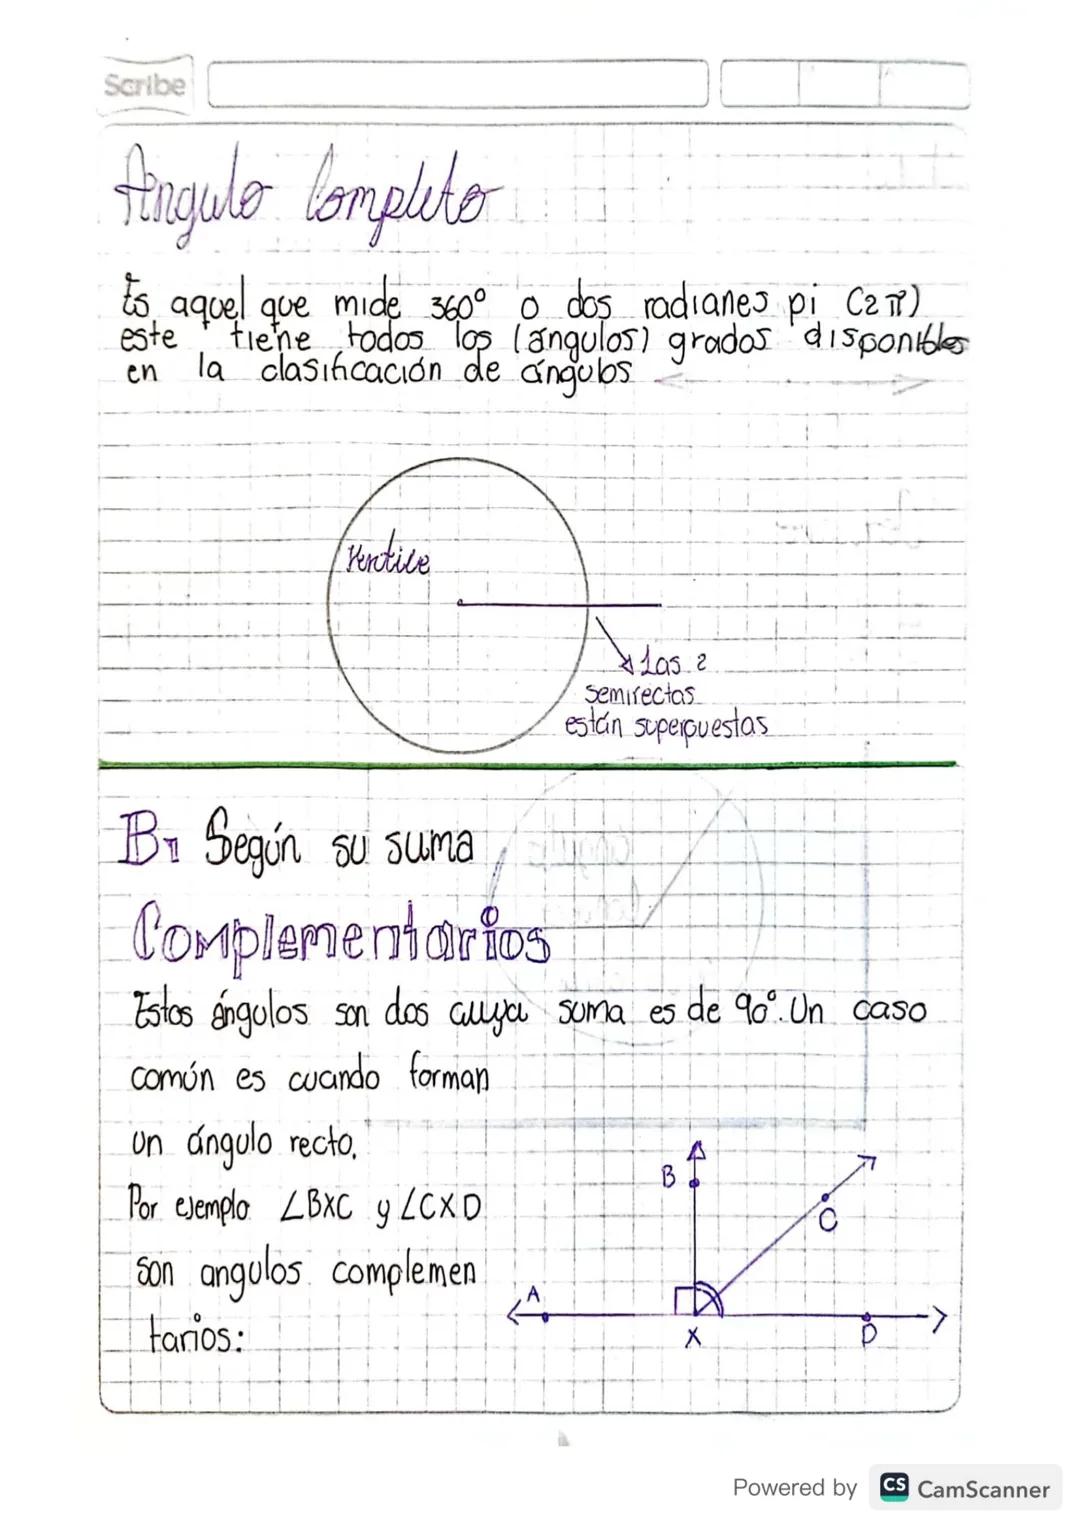 Scribe
Ángulo Completo
Es aquel que mide 360° o dos radianes pi (2π)
este tiene todos los (ángulos) grados disponibles
en la clasificación de ángulos
Vertice
Las 2
semirectas
están superpuestas
B1 Según su suma
Complementarios
Estos ángulos son dos cuya suma es de 90°. Un caso
común es cuando forman
un ángulo recto.
Por ejemplo ∠BXC y ∠CXD
son angulos complemen
tarios:
B
C
A
X
D
Powered by CS CamScanner